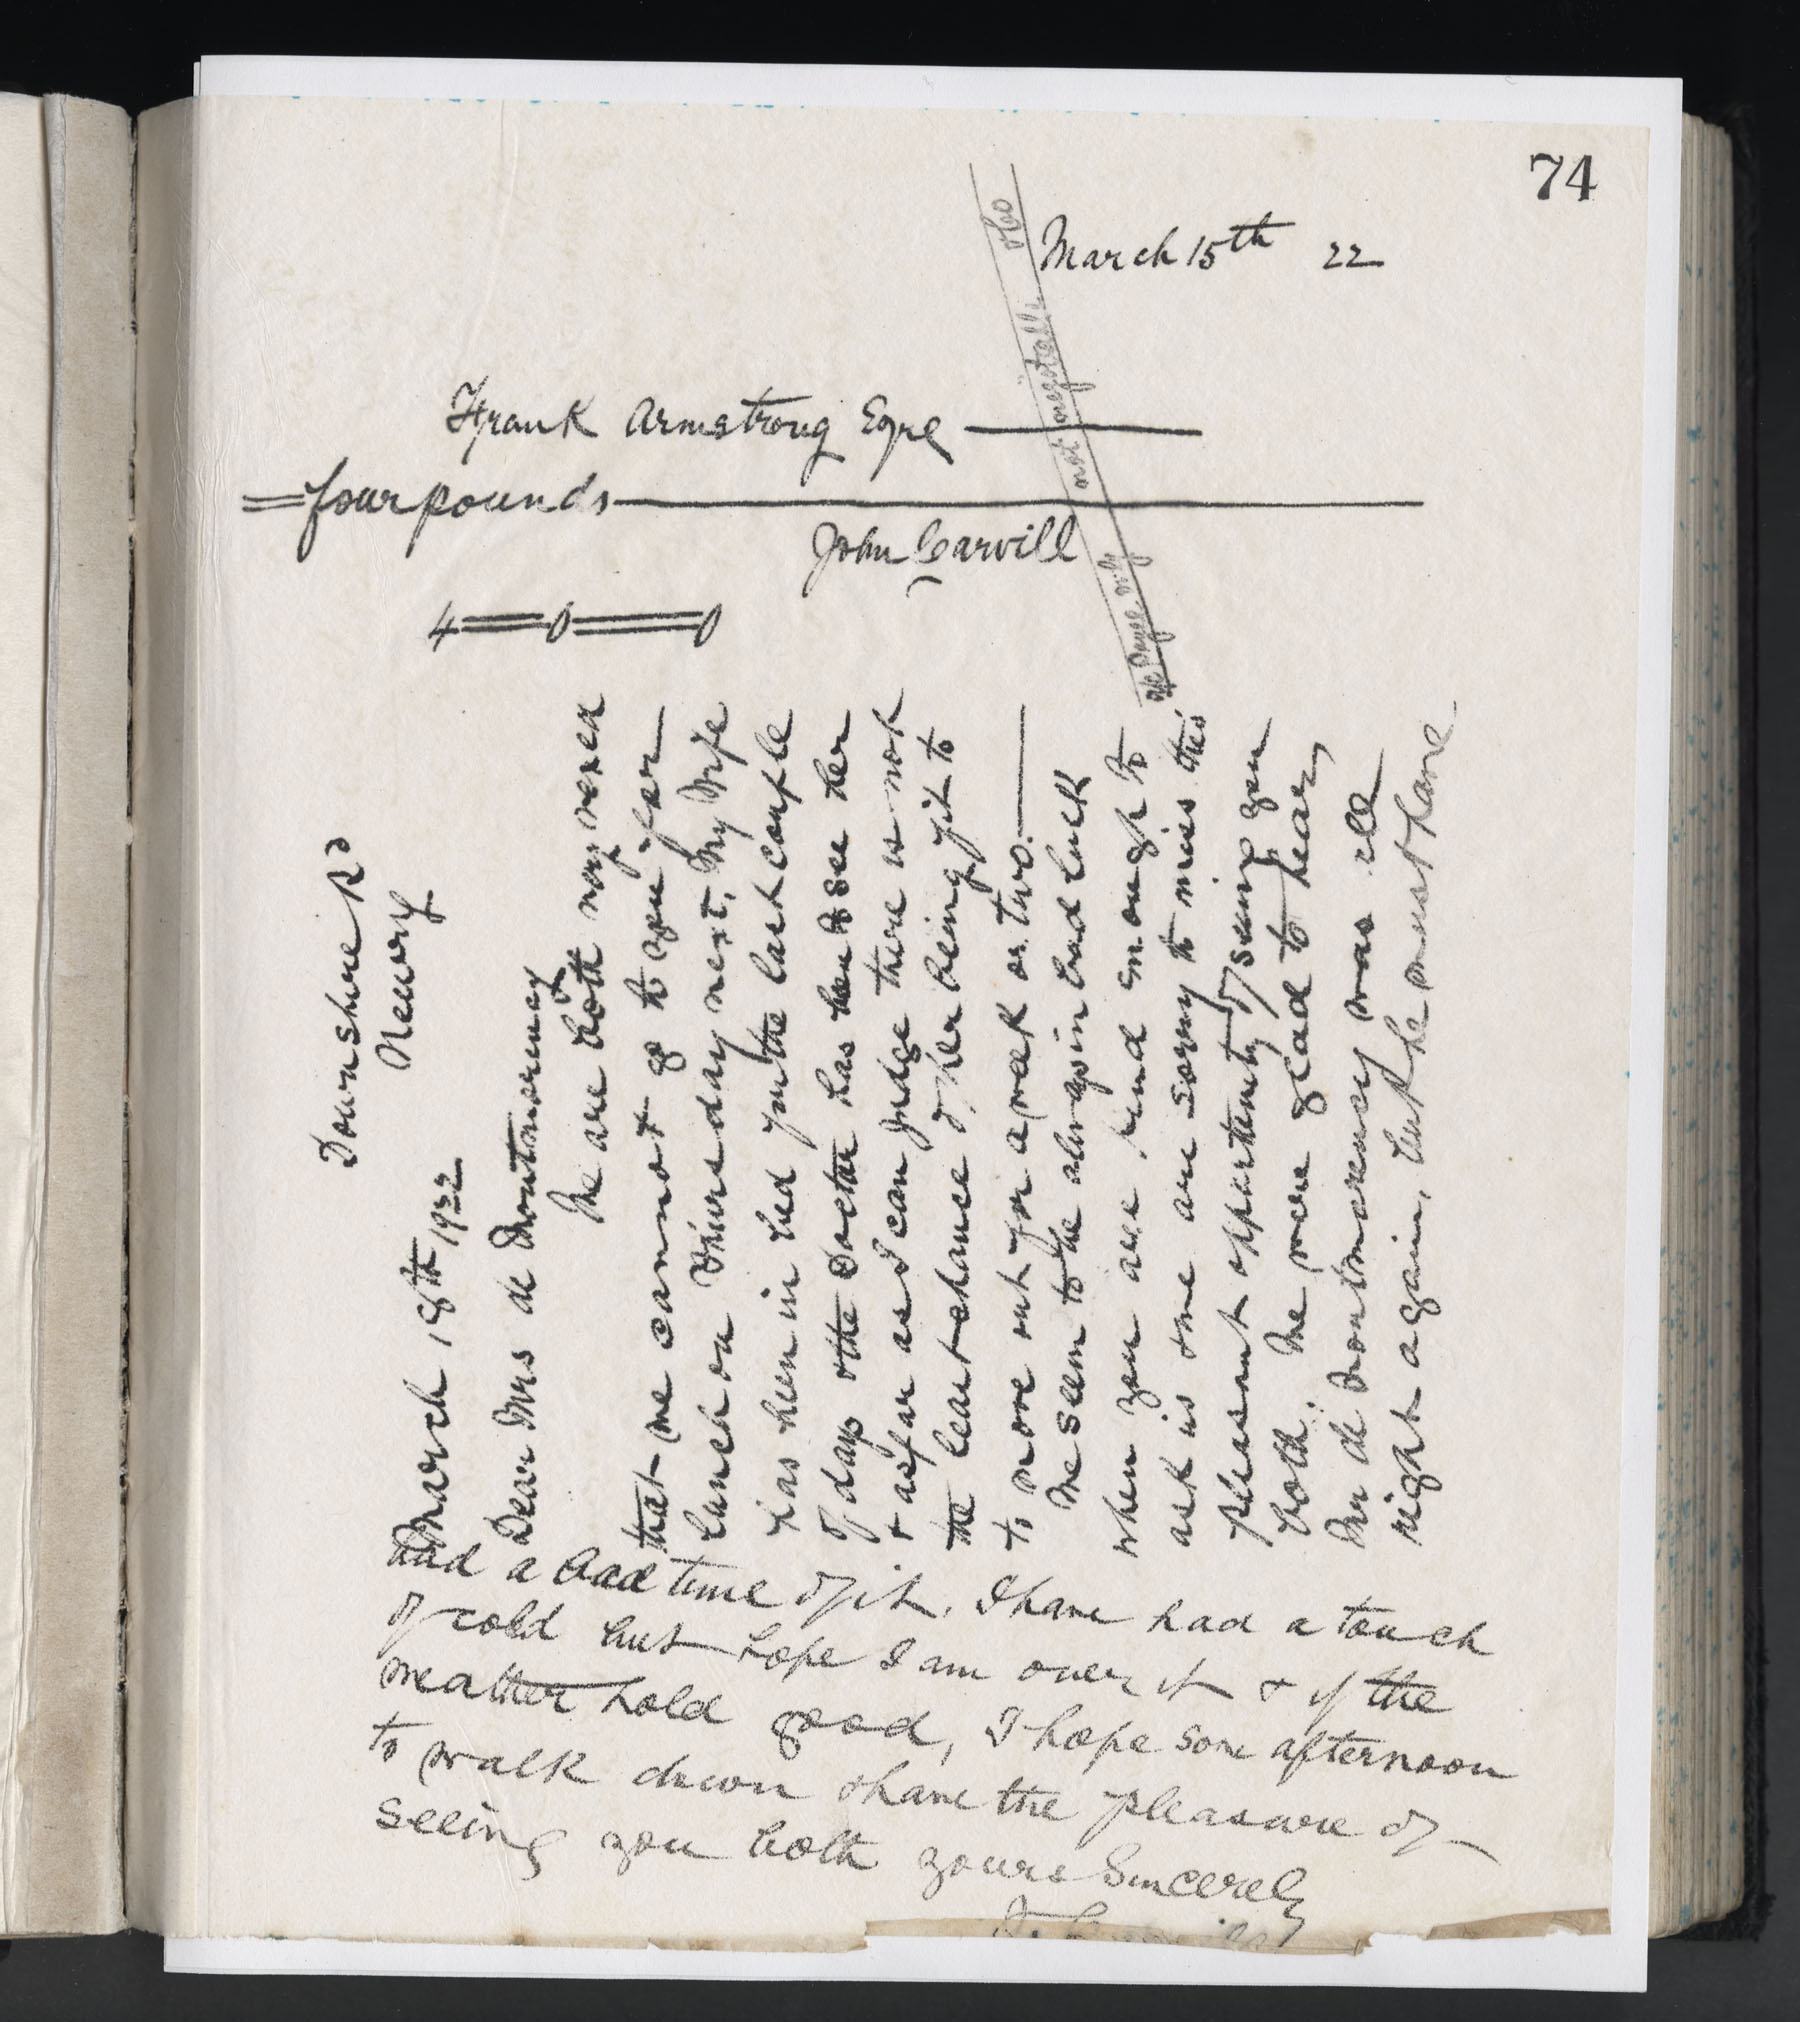 74
March 15th 22
Frank Armstrong Eqre
four pounds
John Carvill
4 = 0 = 0
& Co
"not negotable
a/c Payee only
Downshire Rd
Newry
March 18th 1922
Dear Mrs de Montmorency
We are both very vexed
that we cannot go to you for
lunch on Thursday next. My Wife
has been in bed for the last couple
of days & the Doctor has been to see her
& as far as I can judge there is not
the least chance of her being fit to
to move out for a week or two.
We seem to be always in bad luck
when you are kind enough to
ask us & one are sorry to miss this
pleasant opportunity of seeing you
both. We were glad to hear,
Mr de Montmorency was all
right again, but he must have
had a bad time of it. I have had a touch
of cold but hope I am over it & if the
weather hold good, I hope some afternoon
to walk down & have the pleasure of
seeing you both yours Sincerely